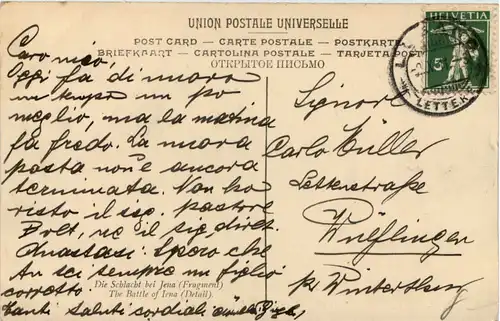 UNION POSTALE UNIVERSELLE
POST CARD — CARTE POSTALE — POSTKARTE
BRIEFKAART — CARTOLINA POSTALE — TARJETA POSTAL
ОТКРЫТОЕ ПИСЬМО
HELVETIA
5
LETTEN
Caro mio,
Oggi fa di nuovo
un tempo un po
meglio, ma la matina
fa fredo. La nuova
posta non è ancora
terminata. Non ho
visto il sig. pastore
Bolt, ne il sig. diret.
Anastasi. Spero che
tu sei sempre un figlio
corretto.
Tanti saluti cordiali
Die Schlacht bei Jena (Fragment)
The Battle of Jena (Detail).
Signor
Carlo Müller
Lettenstraße
Wülflingen
p/ Winterthur